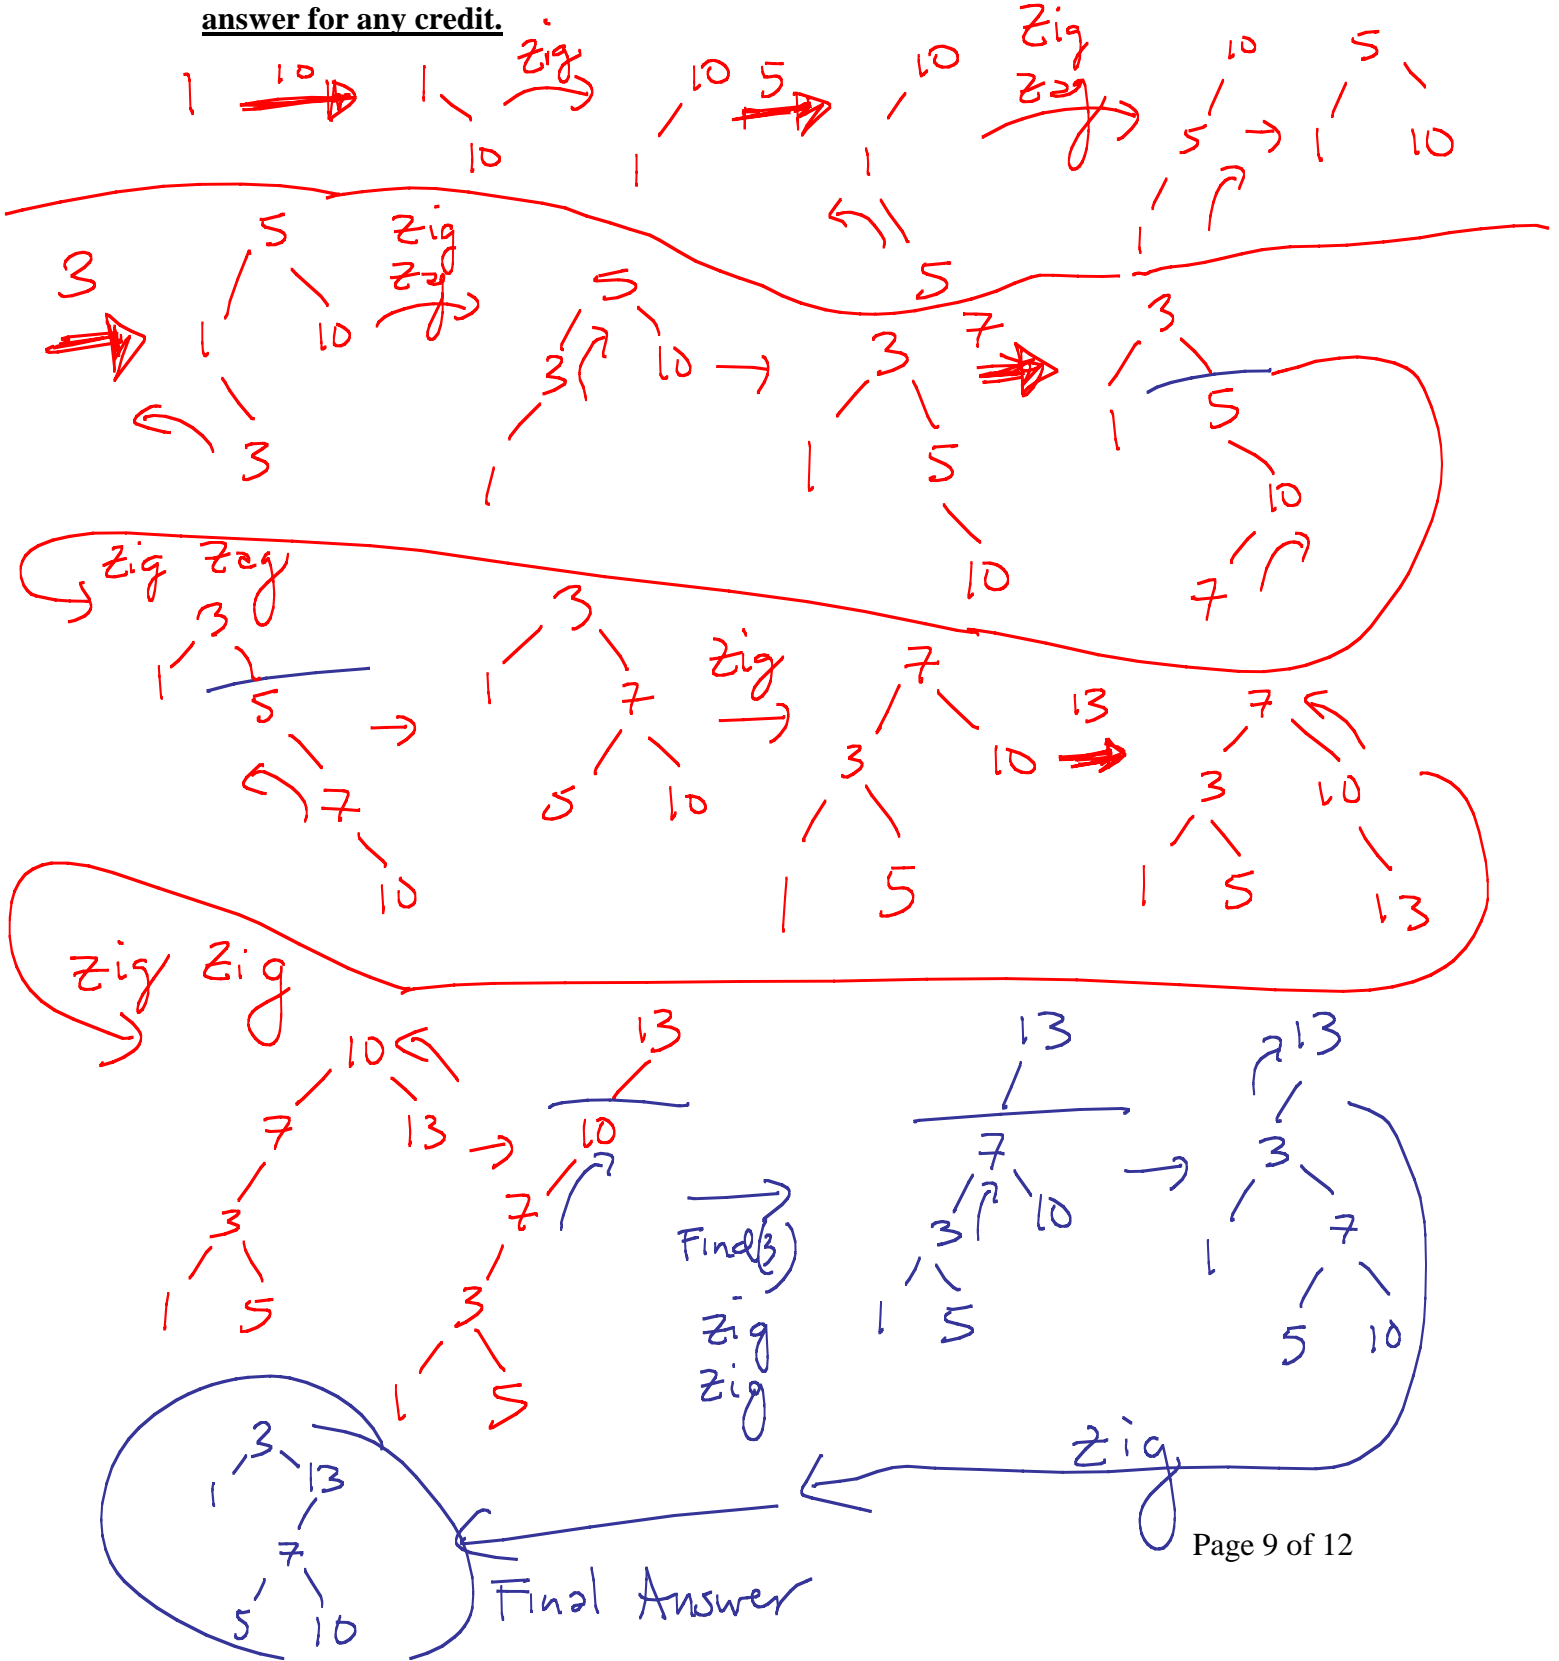 answer for any credit.
1 10 1 10 zig 10 1 5 10 1 5 Zig Zag 10 5 1 5 1 10
3 5 1 10 3 Zig Zag 5 3 10 1 3 1 5 10 7 3 1 5 10 7
Zig Zag 3 1 5 7 10 3 1 7 5 10 Zig 7 3 10 1 5 13 7 3 10 1 5 13
Zig Zig
10 7 13 3 1 5 13 10 7 3 1 5 Find(3) Zig Zig 13 7 3 10 1 5 13 3 1 7 5 10
Zig
3
1 13
7
5 10
Final Answer
Page 9 of 12